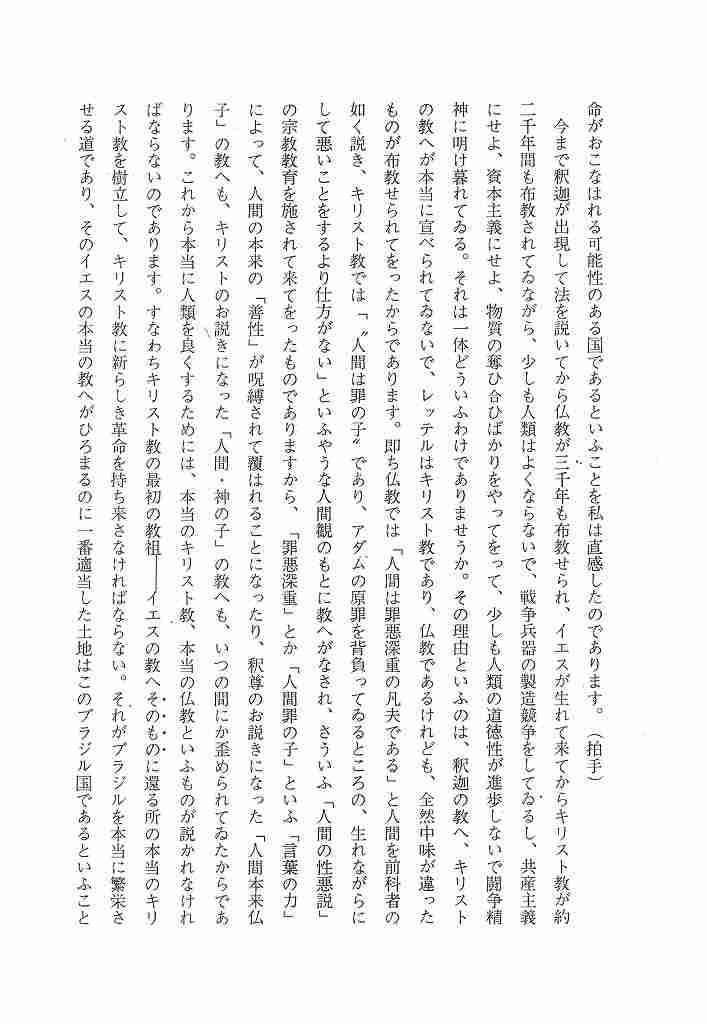 命がおこなはれる可能性のある国であるといふことを私は直感したのであります。（拍手）
今まで釈迦が出現して法を説いてから仏教が三千年も布教せられ、イエスが生れて来てからキリスト教が約
二千年間も布教されてゐながら、少しも人類はよくならないで、戦争兵器の製造競争をしてゐるし、共産主義
にせよ、資本主義にせよ、物質の奪ひ合ひばかりをやってをって、少しも人類の道徳性が進歩しないで闘争精
神に明け暮れてゐる。それは一体どういふわけでありませうか。その理由といふのは、釈迦の教へ、キリスト
の教へが本当に宣べられてゐないで、レッテルはキリスト教であり、仏教であるけれども、全然中味が違った
ものが布教せられてをったからであります。即ち仏教では「人間は罪悪深重の凡夫である」と人間を前科者の
如く説き、キリスト教では「〝人間は罪の子〟であり、アダムの原罪を背負ってゐるところの、生れながらに
して悪いことをするより仕方がない」といふやうな人間観のもとに教へがなされ、さういふ「人間の性悪説」
の宗教教育を施されて来てをったものでありますから、「罪悪深重」とか「人間罪の子」といふ「言葉の力」
によって、人間の本来の「善性」が呪縛されて覆はれることになったり、釈尊のお説きになった「人間本来仏
子」の教へも、キリストのお説きになった「人間・神の子」の教へも、いつの間にか歪められてゐたからであ
ります。これから本当に人類を良くするためには、本当のキリスト教、本当の仏教といふものが説かれなけれ
ばならないのであります。すなわちキリスト教の最初の教祖――イエスの教へそのものに還る所の本当のキリ
スト教を樹立して、キリスト教に新らしき革命を持ち来さなければならない。それがブラジルを本当に繁栄さ
せる道であり、そのイエスの本当の教へがひろまるのに一番適当した土地はこのブラジル国であるといふこと